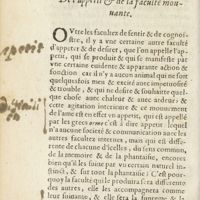 De l'appetit & de la faculté mou-
uante.
OVtre les facultez de sentir & de cognoi-
stre, il y a vne certaine autre faculté
d'appeter & de desirer, que l'on appelle l'ap-
petit, qui se produit & qui se manifeste par
vne certaine euidente & apparente action &
fonction: car il n'y a aucun animal qui ne soit
quelquefois meu & excité auec impetuosité
& trouble, & qui ne desire & souhaite quel-
que chose auec chaleur & auec ardeur; &
cete agitation interieure & ce mouuement
de l'ame est en effet vn appetit, qui est appellé
par les grecs orme c'est à dire appetit: lequel
n'a aucune societé & communication auec les
autres facultez internes, mais est differente
de chacune d'icelles, du sens commun,
de la memoire & de la phantasie, encores
bien qu'elle suiue par vn certain mouuel in-
stinct, & le sens & la phantasie. C'est pour-
quoy la faculté qui le produira sera differente
des autres, elle les accompagnera comme
leur suiuante, & elle sera la supreme & la
appetit